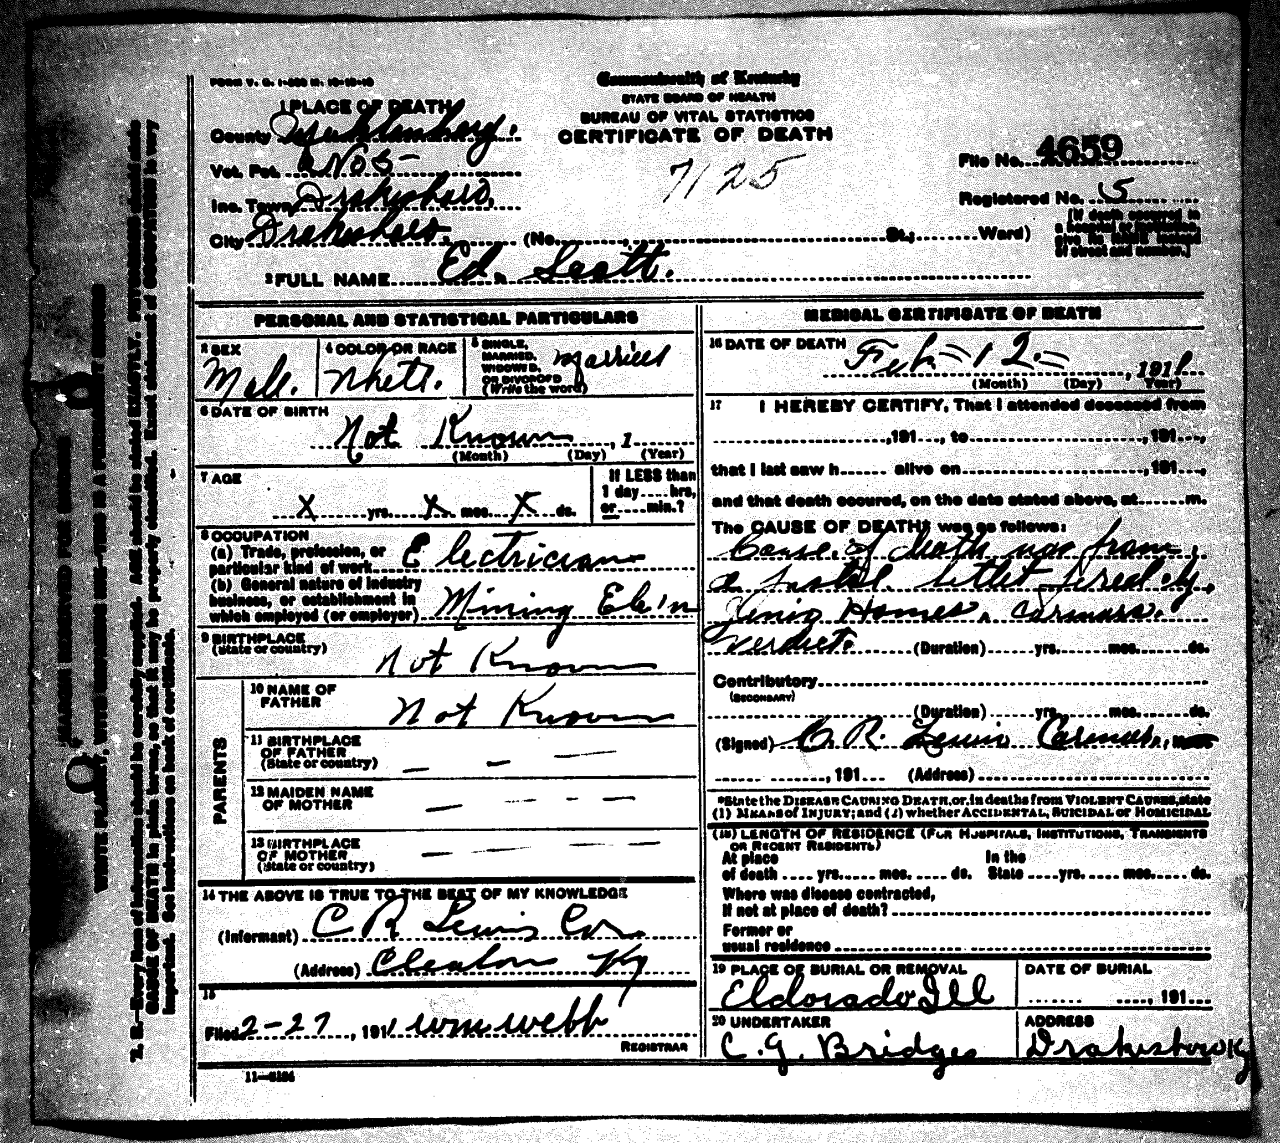 FORM V. S. 1-
Commonwealth of Kentucky
STATE BOARD OF HEALTH
BUREAU OF VITAL STATISTICS
CERTIFICATE OF DEATH
1 PLACE OF DEATH
County
Vot. Pct. No 5-
Inc. Town Drakesboro,
City Drakesboro. (No. St.; Ward)
7125
File No. 4659
Registered No. 5
[If death occurred in
a hospital or institution,
give its NAME instead
of street and number.]
2 FULL NAME Ed. Scott.
PERSONAL AND STATISTICAL PARTICULARS
3 SEX
Male.
4 COLOR OR RACE
White.
5 SINGLE,
MARRIED,
WIDOWED,
OR DIVORCED
(Write the word)
Married
6 DATE OF BIRTH
Not Known , 1
(Month) (Day) (Year)
7 AGE
X yrs. X mos. X ds.
If LESS than
1 day....hrs.
or....min.?
8 OCCUPATION
(a) Trade, profession, or
particular kind of work Electrician
(b) General nature of industry
business, or establishment in
which employed (or employer) Mining
9 BIRTHPLACE
(State or country)
Not Known
PARENTS
10 NAME OF
FATHER
Not Known
11 BIRTHPLACE
OF FATHER
(State or country) — — —
12 MAIDEN NAME
OF MOTHER — — - —
13 BIRTHPLACE
OF MOTHER
(State or country) — — — —
14 THE ABOVE IS TRUE TO THE BEST OF MY KNOWLEDGE
(Informant) C R Lewis Cor.
(Address) Cleaton Ky
15
Filed 2-27, 1911 Wm Webb
REGISTRAR
11—3184
MEDICAL CERTIFICATE OF DEATH
16 DATE OF DEATH
Feb = 12 = , 1911
(Month) (Day) Year)
17 I HEREBY CERTIFY, That I attended deceased from
,191..., to ,191...,
that I last saw h...... alive on ,191...,
and that death occured, on the date stated above, at m.
The CAUSE OF DEATH* was as follows:
Cause of death was from
a pistol bullet fired by
Homes.
verdict. (Duration) yrs. mos. ds.
Contributory
(SECONDARY)
(Duration) yrs. mos. ds.
(Signed) C. R. Lewis
, 191 (Address)
*State the DISEASE CAUSING DEATH, or, in deaths from VIOLENT CAUSES, state
(1) MEANS of INJURY; and (2) whether ACCIDENTAL, SUICIDAL or HOMICIDAL
(18) LENGTH OF RESIDENCE (FOR HOSPITALS, INSTITUTIONS, TRANSIENTS
OR RECENT RESIDENTS)
At place
of death .... yrs. mos. ds.
In the
State yrs. mos. ds.
Where was disease contracted,
If not at place of death?
Former or
usual residence
19 PLACE OF BURIAL OR REMOVAL
Eldorado Ill
DATE OF BURIAL
, 191
20 UNDERTAKER
C. G. Bridges
ADDRESS
Drakesboro Ky
MARGIN RESERVED FOR BINDING
WRITE PLAINLY, WITH UNFADING INK—THIS IS A PERMANENT RECORD
N. B.—Every item of information should be carefully supplied. AGE should be stated EXACTLY. PHYSICIANS should state
CAUSE OF DEATH in plain terms, so that it may be properly classified. Exact statement of OCCUPATION is very
important. See instructions on back of certificate.